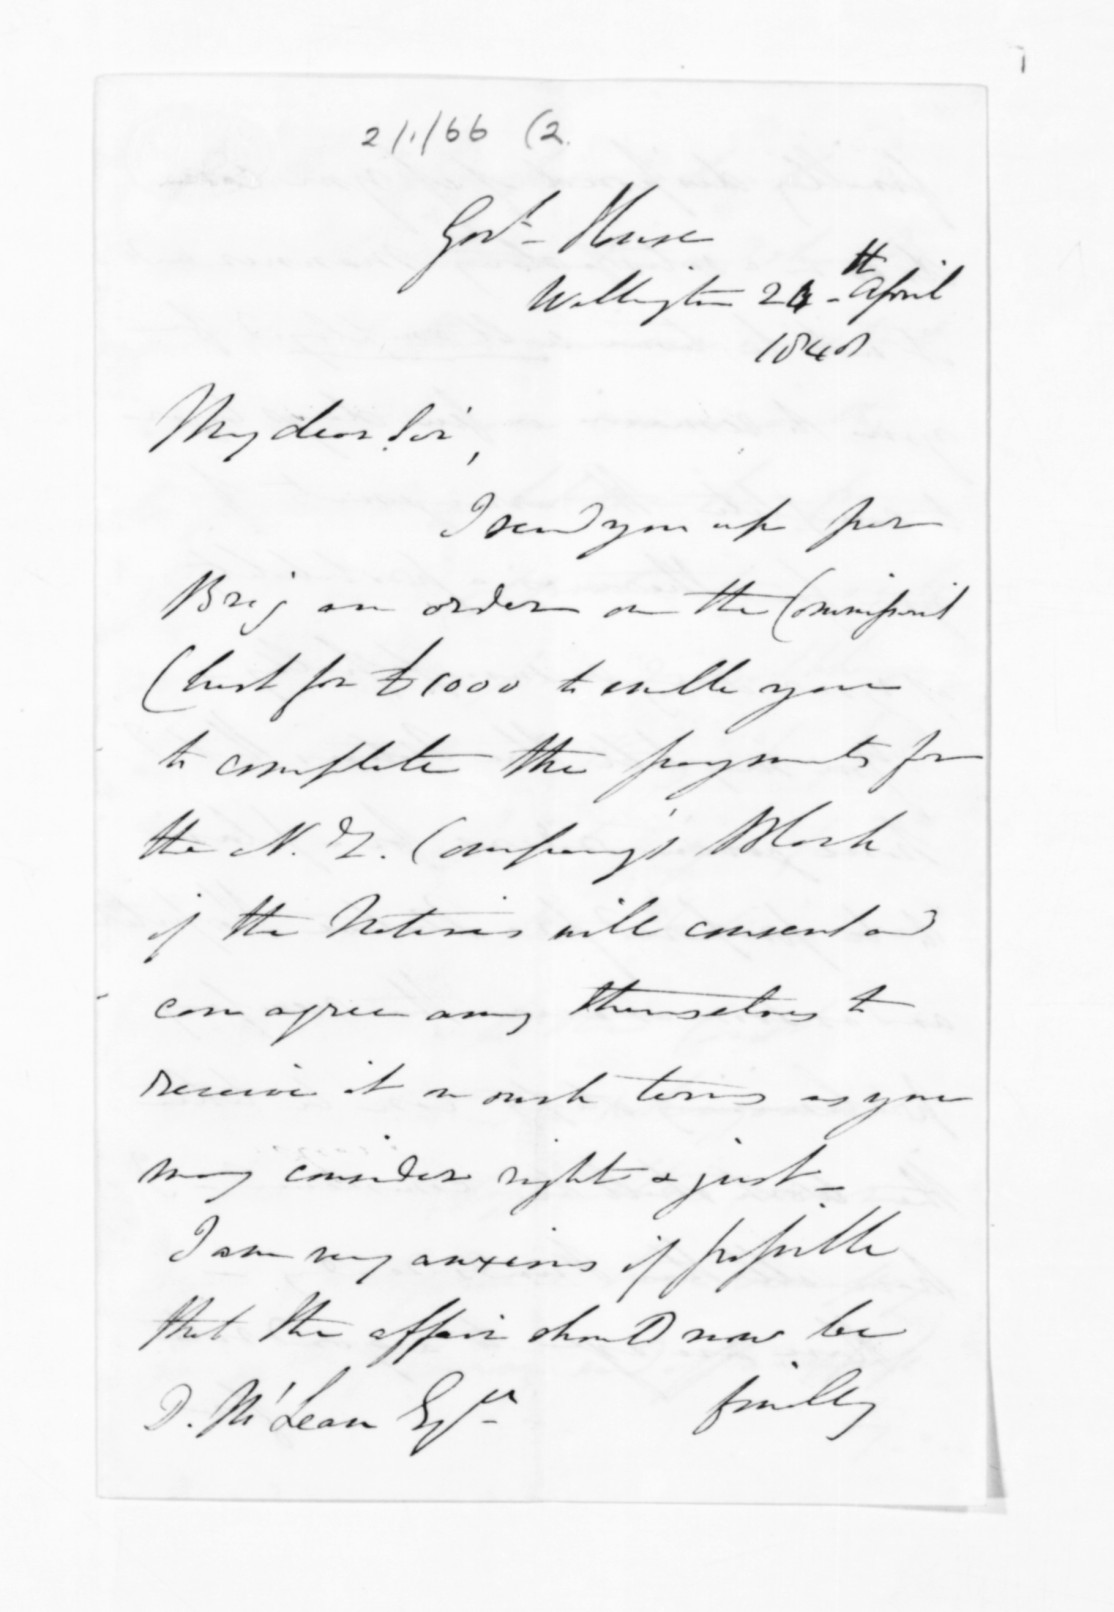 2/1/66 (2.
Govt. House
Wellington 24th April
1848
My dear Sir,
I send you up per
Brig an order on the Commissariat
Chest for £1000 to enable you
to complete the payments for
the N.Z. Company's Block
if the Natives will consent and
can agree among themselves to
receive it on such terms as you
may consider right & just_
I am very anxious if possible
that the affair should now be
finally
D. McLean Esqre